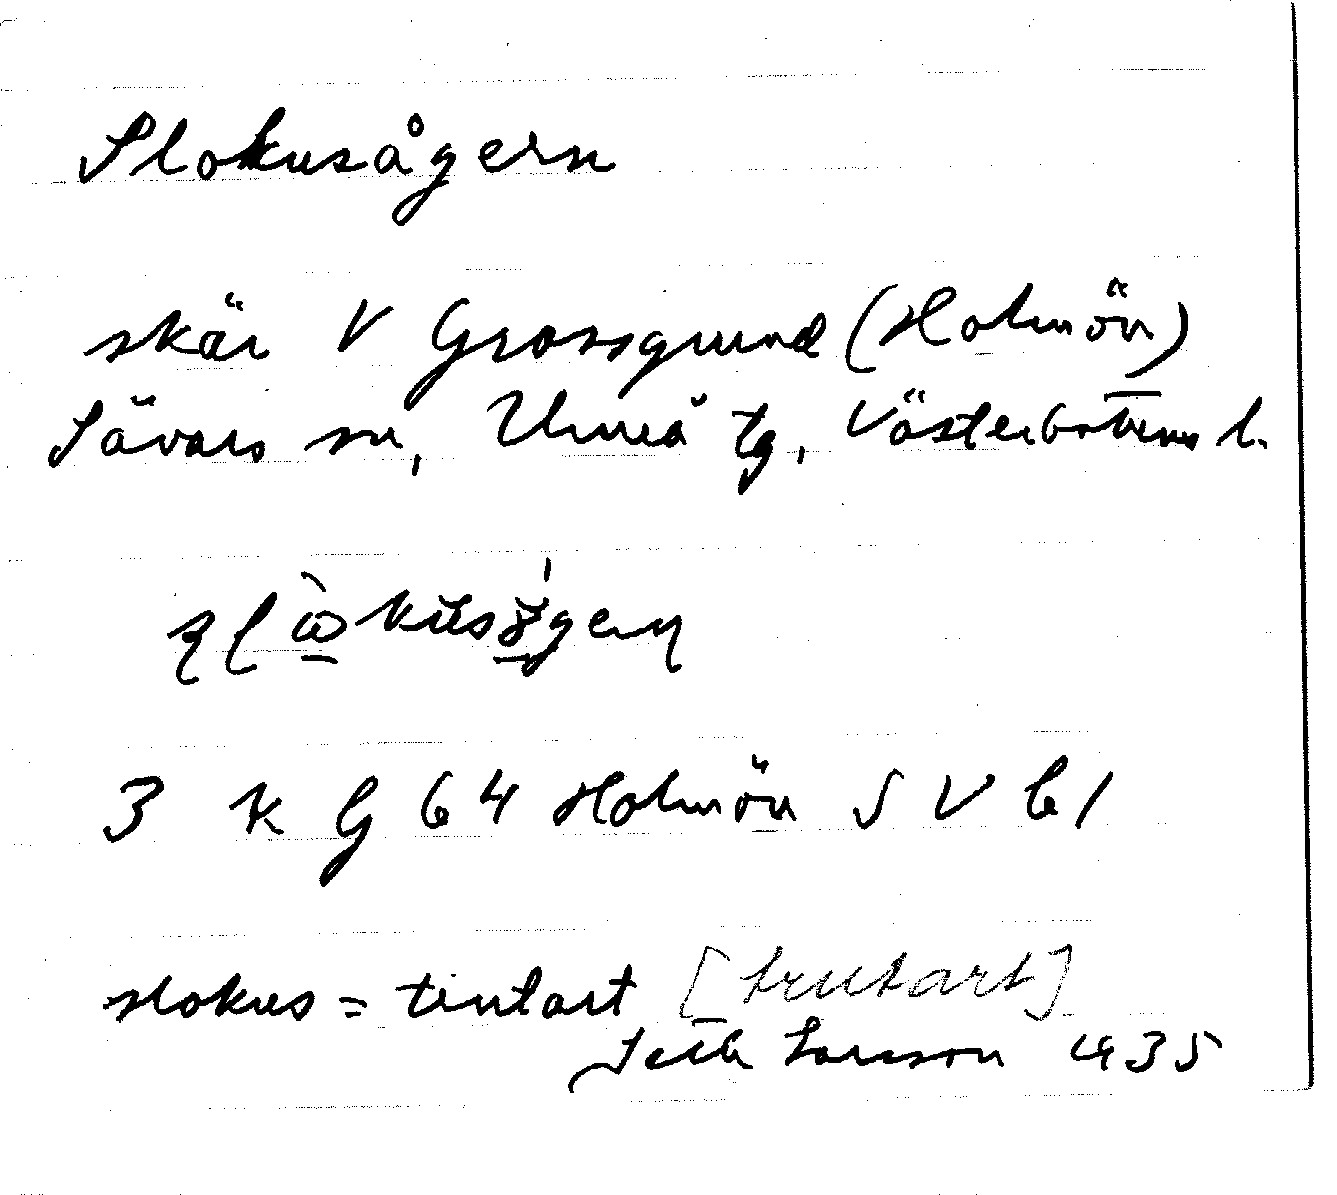 Slokusågern
skär V Grossgrund (Holmön)
Sävars sn, Umeå tg, Västerbottens l.
3 K G 64 Holmön S V b1
slokus = tintart [trutart]
Seth Larsson 1935